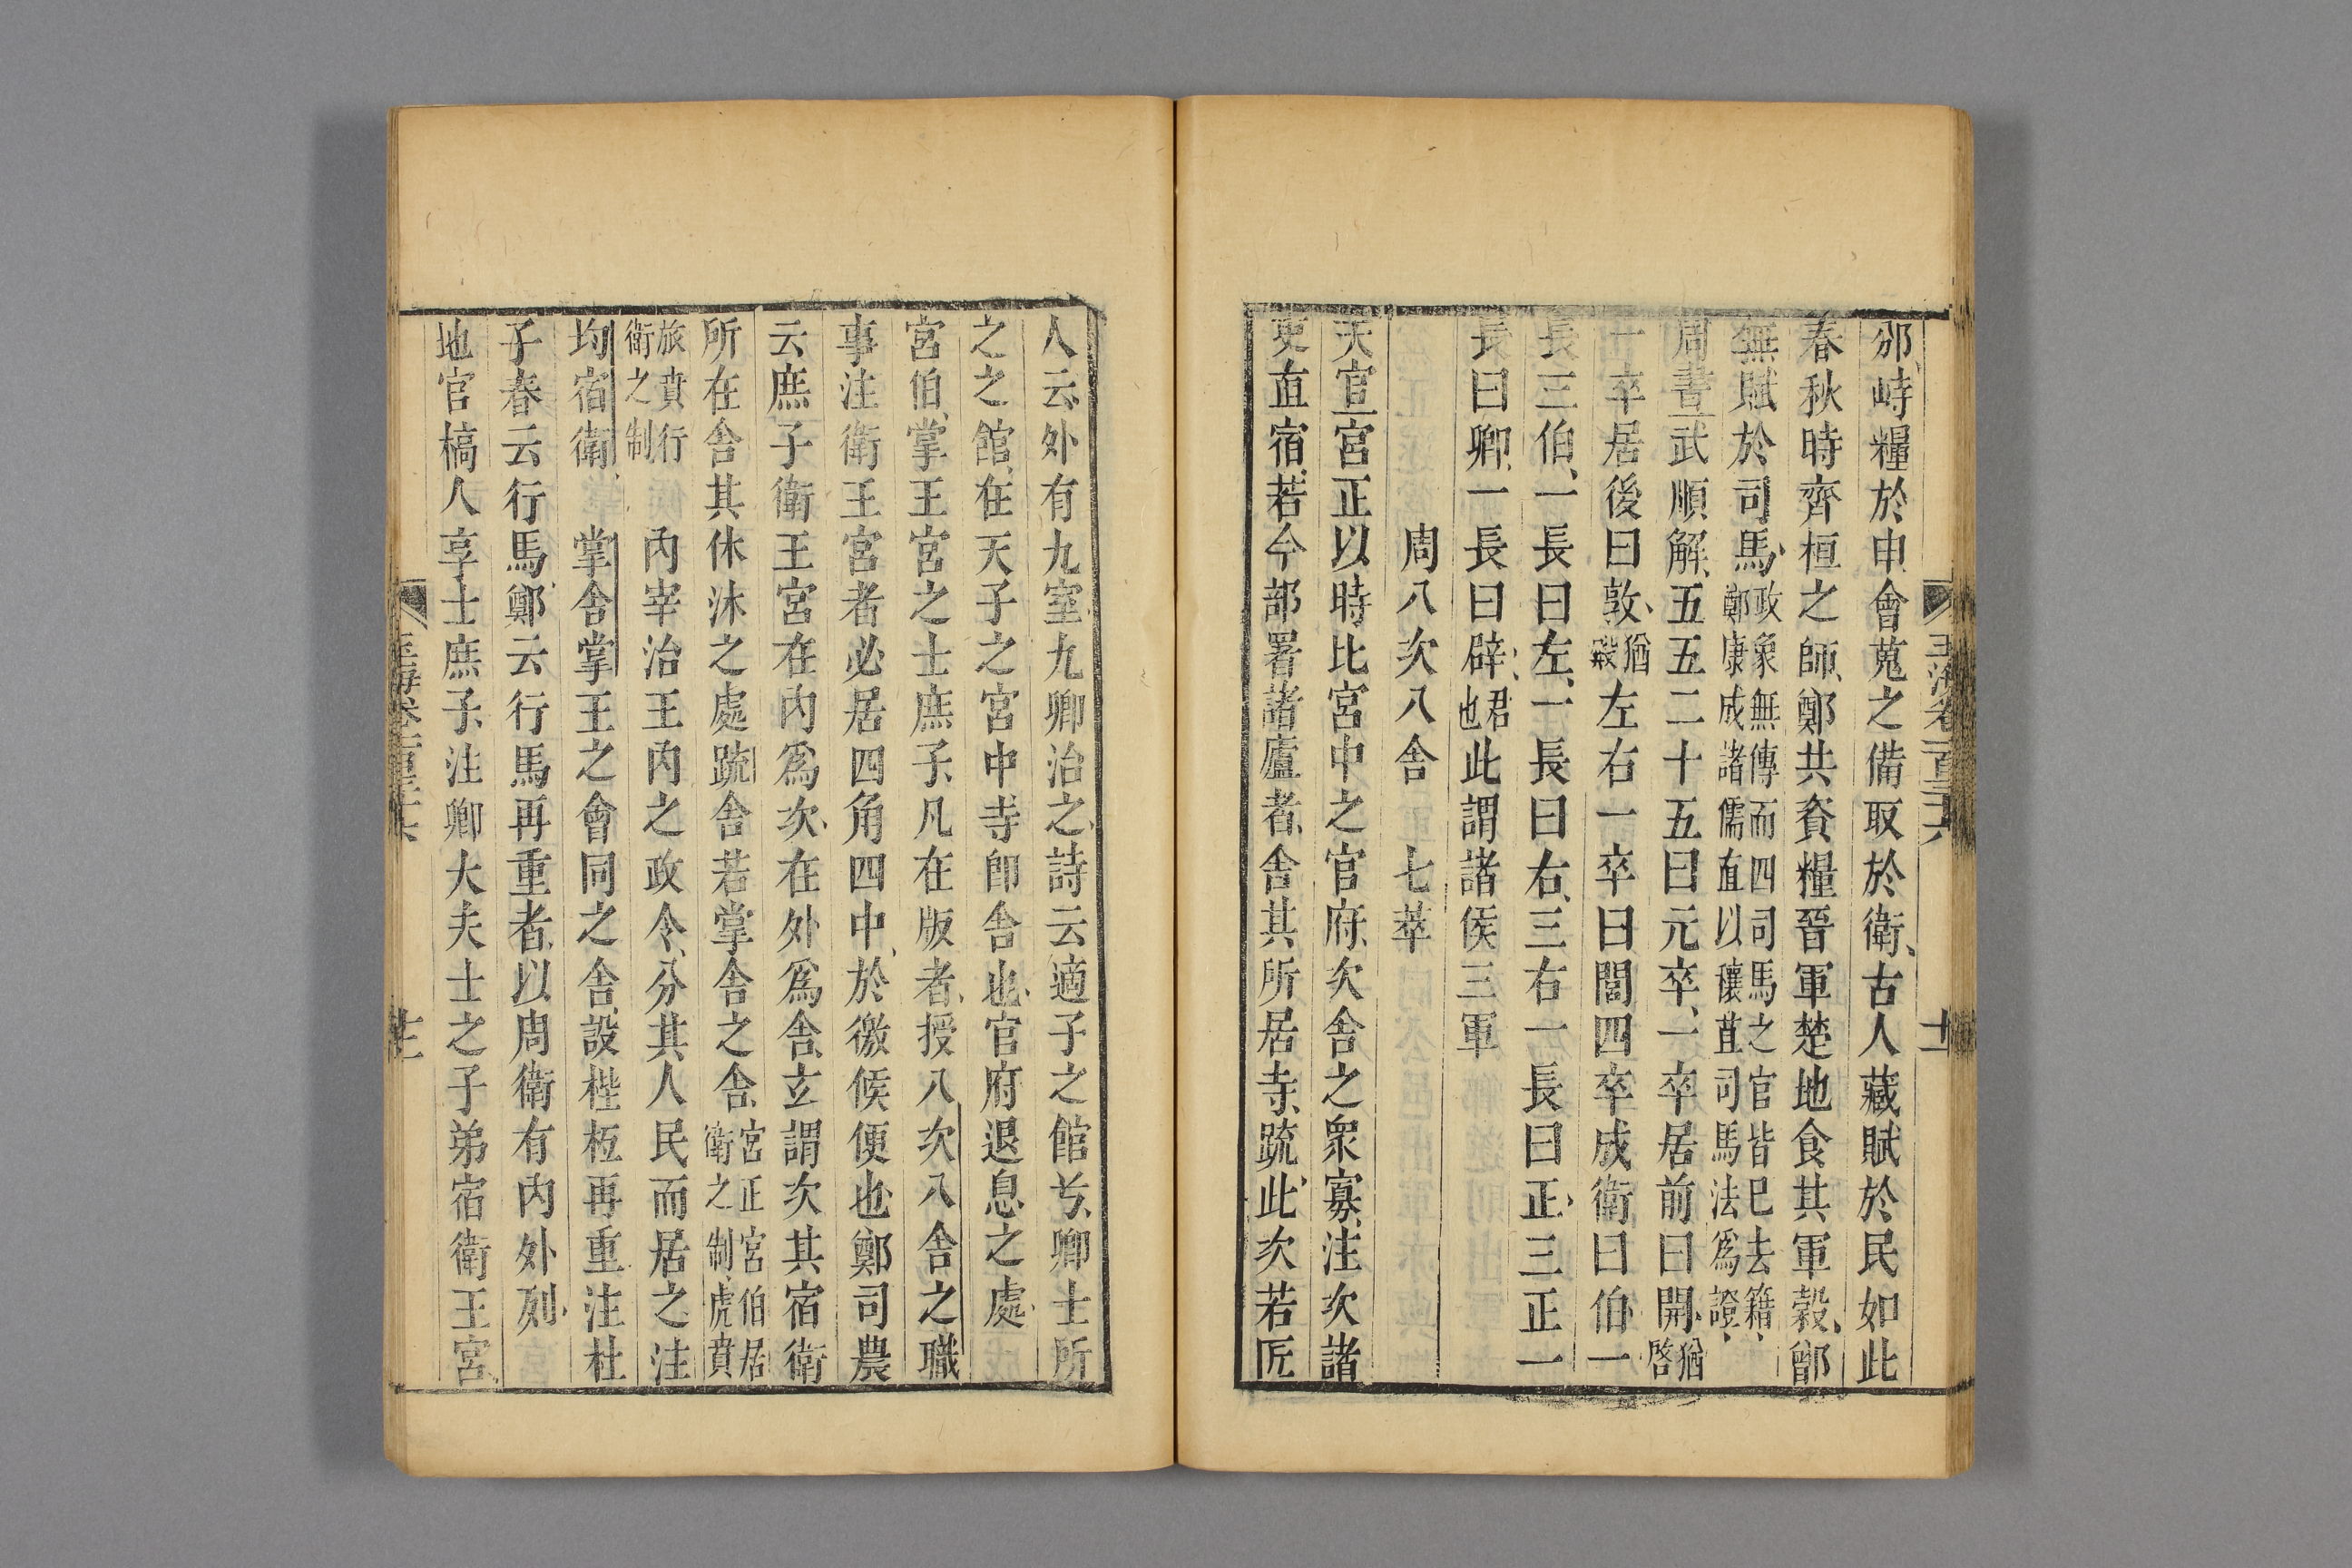 邠峙糧於申會蒐之備取於衛古人藏賦於民如此
春秋時齊桓之師鄭共資糧晉軍楚地食其軍穀鄫
無賦於司馬政象無傳而四司馬之官皆已去籍鄭康成諸儒直以穰苴司馬法為證
周書武順解五五二十五曰元卒一卒居前曰開猶啓
一卒居後曰敦猶殿左右一卒曰閭四卒成衛曰伯一
長三伯一長曰左一長曰右三右一長曰正三正一
長曰卿一長曰辟君也此謂諸侯三軍
周八次八舍 七萃
天官宮正以時比宮中之官府次舍之衆寡注次諸
吏直宿若今部署諸廬者舍其所居寺疏此次若匠
人云外有九室九卿治之詩云適子之館兮卿士所
之之館在天子之宮中寺即舍也官府退息之處
宮伯掌王宮之士庶子凡在版者授八次八舍之職
事注衛王宮者必居四角四中於徼候便也鄭司農
云庶子衛王宮在內為次在外為舍玄謂次其宿衛
所在舍其休沐之處疏舍若掌舍之舍宮正宮伯居衛之制虎賁
旅賁行衛之制 內宰治王內之政令分其人民而居之注
均宿衛 掌舍掌王之會同之舍設梐枑再重注杜
子春云行馬鄭云行馬再重者以周衛有內外列
地官槁人享士庶子注卿大夫士之子弟宿衛王宮
玉海卷一百三十六
十二